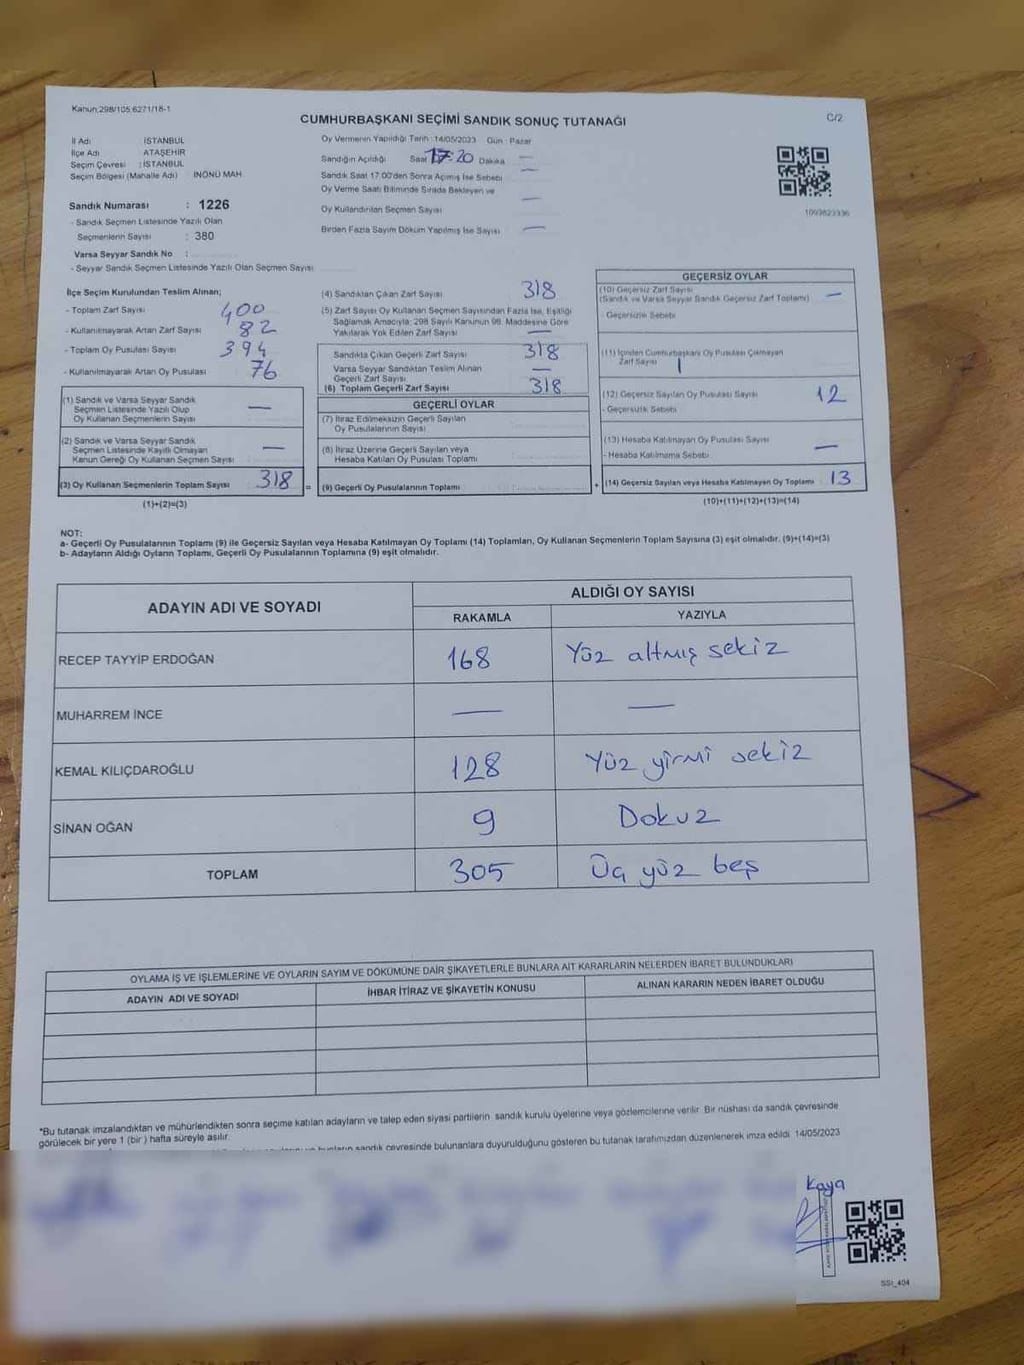 Kanun;298/105,6271/18-1
CUMHURBAŞKANI SEÇİMİ SANDIK SONUÇ TUTANAĞI
C/2
İl Adı : İSTANBUL
İlçe Adı : ATAŞEHİR
Seçim Çevresi : İSTANBUL
Seçim Bölgesi (Mahalle Adı) İNÖNÜ MAH.
Sandık Numarası : 1226
- Sandık Seçmen Listesinde Yazılı Olan
Seçmenlerin Sayısı : 380
Varsa Seyyar Sandık No :
- Seyyar Sandık Seçmen Listesinde Yazılı Olan Seçmen Sayısı
Oy Vermenin Yapıldığı Tarih : 14/05/2023 Gün : Pazar
Sandığın Açıldığı Saat 17:20 Dakika —
Sandık Saat 17:00'den Sonra Açılmış İse Sebebi —
Oy Verme Saati Bitiminde Sırada Bekleyen ve
Oy Kullandırılan Seçmen Sayısı —
Birden Fazla Sayım Döküm Yapılmış İse Sayısı —
1093823336
İlçe Seçim Kurulundan Teslim Alınan;
- Toplam Zarf Sayısı 400
- Kullanılmayarak Artan Zarf Sayısı 82
- Toplam Oy Pusulası Sayısı 394
- Kullanılmayarak Artan Oy Pusulası 76
(1) Sandık ve Varsa Seyyar Sandık
Seçmen Listesinde Yazılı Olup
Oy Kullanan Seçmen Sayısı —
(2) Sandık ve Varsa Seyyar Sandık
Seçmen Listesinde Kayıtlı Olmayan
Kanun Gereği Oy Kullanan Seçmen Sayısı —
(3) Oy Kullanan Seçmenlerin Toplam Sayısı 318 =
(1)+(2)=(3)
(4) Sandıktan Çıkan Zarf Sayısı 318
(5) Zarf Sayısı Oy Kullanan Seçmen Sayısından Fazla İse, Eşitliği
Sağlamak Amacıyla; 298 Sayılı Kanunun 98. Maddesine Göre
Yakılarak Yok Edilen Zarf Sayısı —
Sandıkta Çıkan Geçerli Zarf Sayısı 318
Varsa Seyyar Sandıktan Teslim Alınan
Geçerli Zarf Sayısı —
(6) Toplam Geçerli Zarf Sayısı 318
GEÇERLİ OYLAR
(7) İtiraz Edilmeksizin Geçerli Sayılan
Oy Pusulalarının Sayısı
(8) İtiraz Üzerine Geçerli Sayılan veya
Hesaba Katılan Oy Pusulası Toplamı
(9) Geçerli Oy Pusulalarının Toplamı +
GEÇERSİZ OYLAR
(10) Geçersiz Zarf Sayısı —
(Sandık ve Varsa Seyyar Sandık Geçersiz Zarf Toplamı)
- Geçersizlik Sebebi
(11) İçinden Cumhurbaşkanı Oy Pusulası Çıkmayan
Zarf Sayısı 1
(12) Geçersiz Sayılan Oy Pusulası Sayısı 12
- Geçersizlik Sebebi
(13) Hesaba Katılmayan Oy Pusulası Sayısı —
- Hesaba Katılmama Sebebi
(14) Geçersiz Sayılan veya Hesaba Katılmayan Oy Toplamı 13
(10)+(11)+(12)+(13)=(14)
NOT:
a- Geçerli Oy Pusulalarının Toplamı (9) ile Geçersiz Sayılan veya Hesaba Katılmayan Oy Toplamı (14) Toplamları, Oy Kullanan Seçmenlerin Toplam Sayısına (3) eşit olmalıdır. (9)+(14)=(3)
b- Adayların Aldığı Oyların Toplamı, Geçerli Oy Pusulalarının Toplamına (9) eşit olmalıdır.
ADAYIN ADI VE SOYADI ALDIĞI OY SAYISI
RAKAMLA YAZIYLA
RECEP TAYYİP ERDOĞAN 168 Yüz altmış sekiz
MUHARREM İNCE — —
KEMAL KILIÇDAROĞLU 128 Yüz yirmi sekiz
SİNAN OĞAN 9 Dokuz
TOPLAM 305 Üç yüz beş
OYLAMA İŞ VE İŞLEMLERİNE VE OYLARIN SAYIM VE DÖKÜMÜNE DAİR ŞİKAYETLERLE BUNLARA AİT KARARLARIN NELERDEN İBARET BULUNDUKLARI
ADAYIN ADI VE SOYADI İHBAR İTİRAZ VE ŞİKAYETİN KONUSU ALINAN KARARIN NEDEN İBARET OLDUĞU
*Bu tutanak imzalandıktan ve mühürlendikten sonra seçime katılan adayların ve talep eden siyasi partilerin sandık kurulu üyelerine veya gözlemcilerine verilir. Bir nüshası da sandık çevresinde
görülecek bir yere 1 (bir) hafta süreyle asılır.
sandık çevresinde bulunanlara duyurulduğunu gösteren bu tutanak tarafımızdan düzenlenerek imza edildi. 14/05/2023
Kaya
SSt_404